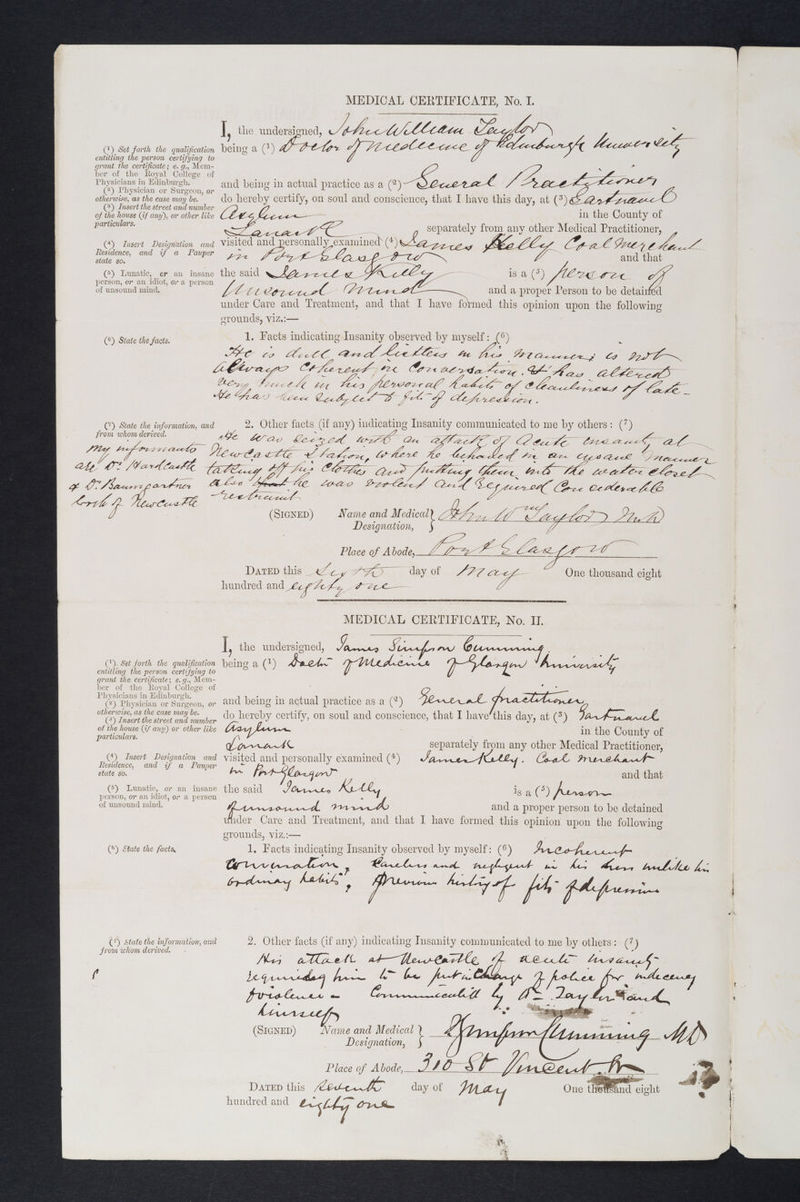 MEDICAL CERTIFICATE, No. I.
I, the undersigned, John William Taylor
(¹) Set forth the qualification entitling the person certifying to grant the certificate; e.g., Member of the Royal College of Physicians in Edinburgh.
being a (¹) Doctor of Medicine of Edinburgh University
(²) Physician or Surgeon, or otherwise, as the case may be.
and being in actual practice as a (²) General Practitioner
(³) Insert the street and number of the house (if any), or other like particulars.
do hereby certify, on soul and conscience, that I have this day, at (³) Gartnavel
Asylum in the County of
Lanark separately from any other Medical Practitioner,
(⁴) Insert Designation and Residence, and if a Pauper state so.
visited and personally examined (⁴) James Kelly Coal Merchant
in Port Glasgow and that
(⁵) Lunatic, or an insane person, or an idiot, or a person of unsound mind.
the said James Kelly is a (⁵) person of
Unsound Mind and a proper Person to be detained
under Care and Treatment, and that I have formed this opinion upon the following
grounds, viz.:—
(⁶) State the facts.
1. Facts indicating Insanity observed by myself: (⁶)
He is dull and listless in his manner; is not
always coherent in conversation. It has altered
very much in his personal habits of cleanliness of late.
He has been subject to fits of depression.
(⁷) State the information, and from whom derived.
2. Other facts (if any) indicating Insanity communicated to me by others: (⁷)
He was seized with an attack of acute insanity at
Newcastle Station, where he behaved in an insane manner
taking off his clothes and putting them into the water closet
also he was violent and required considerable
restraint
My informants
are Dr. Hardcastle
& Dr. Baumgartner
both of Newcastle
(SIGNED) Name and Medical Designation, John Wm Taylor M.D.
Place of Abode, Port Glasgow
DATED this Sixth day of May One thousand eight
hundred and eighty one
MEDICAL CERTIFICATE, No. II.
I, the undersigned, James Simpson Cumming
(¹) Set forth the qualification entitling the person certifying to grant the certificate; e.g., Member of the Royal College of Physicians in Edinburgh.
being a (¹) Doctor of Medicine of Glasgow University
(²) Physician or Surgeon, or otherwise, as the case may be.
and being in actual practice as a (²) General practitioner
(³) Insert the street and number of the house (if any) or other like particulars.
do hereby certify, on soul and conscience, that I have this day, at (³) Gartnavel
Asylum in the County of
Lanark separately from any other Medical Practitioner,
(⁴) Insert Designation and Residence, and if a Pauper state so.
visited and personally examined (⁴) James Kelly. Coal merchant
in Port Glasgow and that
(⁵) Lunatic, or an insane person, or an idiot, or a person of unsound mind.
the said James Kelly is a (⁵) person
of unsound mind and a proper person to be detained
under Care and Treatment, and that I have formed this opinion upon the following
grounds, viz.:—
(⁶) State the facts.
1. Facts indicating Insanity observed by myself: (⁶) Incoherent
conversation, careless and negligent in his dress unlike his
ordinary habits, previous history of fits of depression
(⁷) State the information, and from whom derived.
2. Other facts (if any) indicating Insanity communicated to me by others: (⁷)
His attack at Newcastle of acute insanity
requiring him to be put in charge of police for indecency
& violence — Communicated by Dr Taylor and
himself
(SIGNED) Name and Medical Designation, J Simpson Cumming MD
Place of Abode, 310 St Vincent St
DATED this Seventh day of May One thousand eight
hundred and eighty one